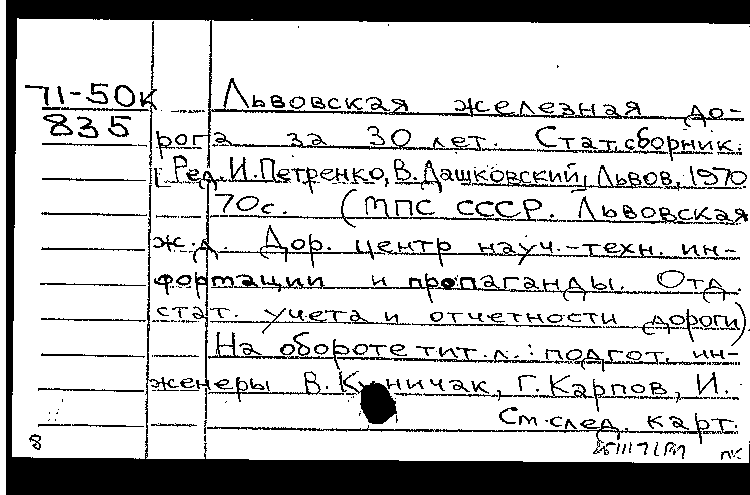 71-50к Львовская железная до-
835 рога за 30 лет. Стат. сборник.
[Ред. И. Петренко, В. Дашковский, Львов, 1970
70с. (МПС СССР. Львовская
ж.д. Дор. центр науч.-техн. ин-
фортации и пропаганды. Отд.
стат. учета и отчетности дороги).
На обороте тит.л.: подгот. ин-
женеры В. Куничак, Г. Карпов, И.
См. след. карт.
8 пк